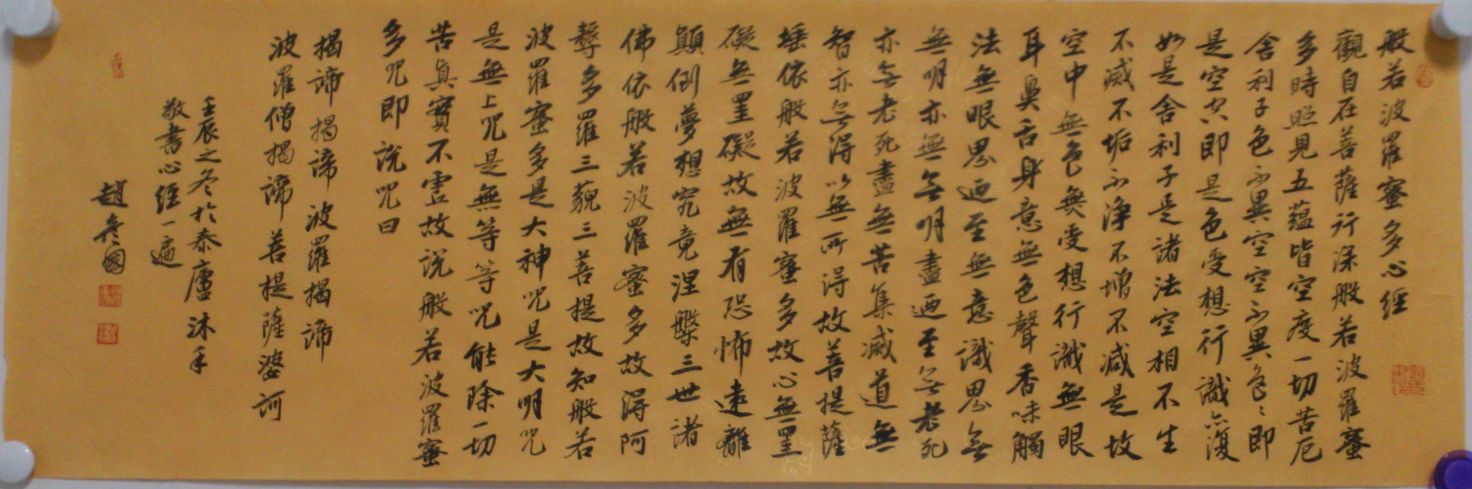 般若波羅蜜多心經
觀自在菩薩行深般若波羅蜜
多時照見五蘊皆空度一切苦厄
舍利子色不異空空不異色〻即
是空空即是色受想行識亦復
如是舍利子是諸法空相不生
不滅不垢不淨不增不減是故
空中無色無受想行識無眼
耳鼻舌身意無色聲香味觸
法無眼界迺至無意識界無
無明亦無無明盡迺至無老死
亦無老死盡無苦集滅道無
智亦無得以無所得故菩提薩
埵依般若波羅蜜多故心無罣
礙無罣礙故無有恐怖遠離
顛倒夢想究竟涅槃三世諸
佛依般若波羅蜜多故得阿
耨多羅三藐三菩提故知般若
波羅蜜多是大神咒是大明咒
是無上咒是無等等咒能除一切
苦真實不虛故說般若波羅蜜
多咒即說咒曰
揭諦揭諦 波羅揭諦
波羅僧揭諦 菩提薩婆訶
壬辰之冬於泰廬沐手
敬書心經一遍
趙國